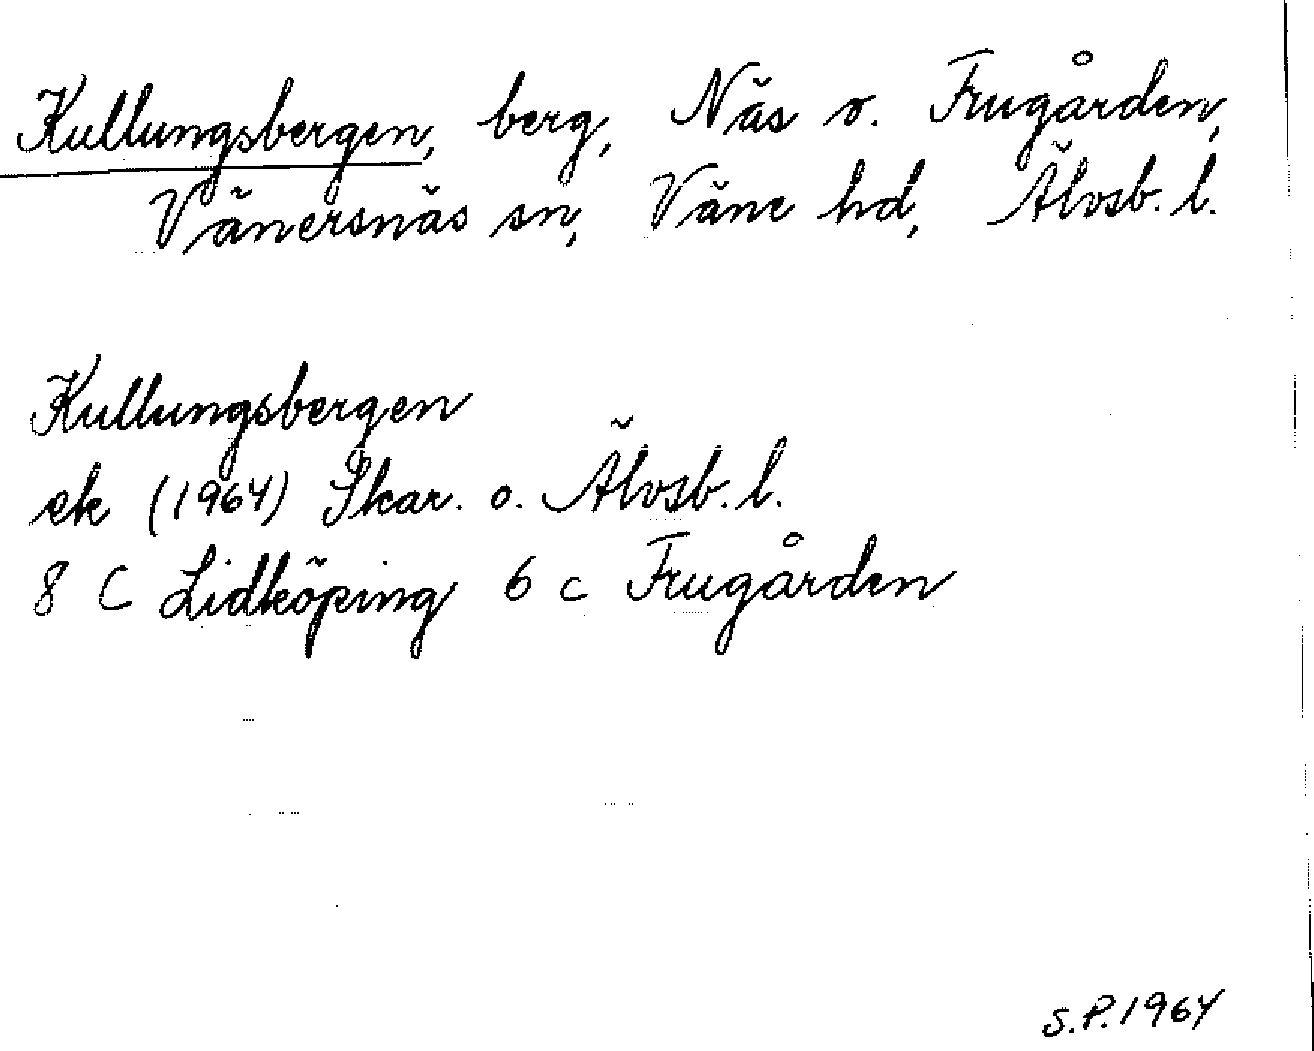 Kullungsbergen, berg, Näs o. Frugården,
Vänersnäs sn, Väne hd, Älvsb. l.
Kullungsbergen
ek (1964) Skar. o. Älvsb. l.
8 C Lidköping 6 c Frugården
S.P. 1964